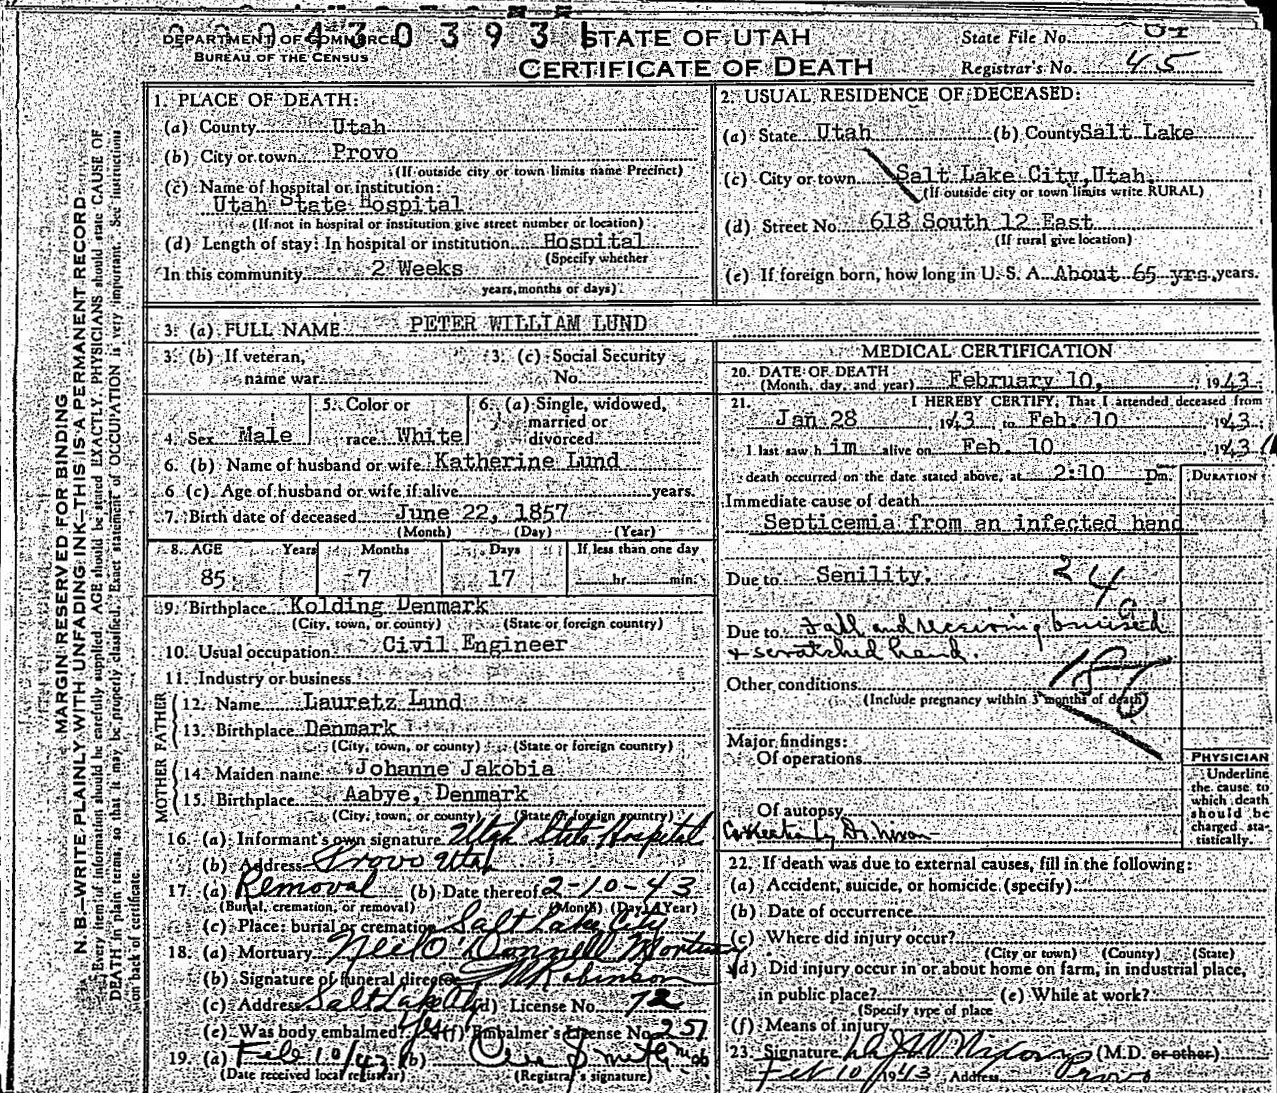 0 0 0 4 3 0 3 9 3
DEPARTMENT OF COMMERCE
BUREAU OF THE CENSUS
STATE OF UTAH
CERTIFICATE OF DEATH
State File No.
Registrar's No. 45
MARGIN RESERVED FOR BINDING
N. B.—WRITE PLAINLY, WITH UNFADING INK—THIS IS A PERMANENT RECORD.
Every item of information should be carefully supplied. AGE should be stated EXACTLY. PHYSICIANS should state CAUSE OF
DEATH in plain terms, so that it may be properly classified. Exact statement of OCCUPATION is very important. See instructions
on back of certificate.
1. PLACE OF DEATH:
(a) County Utah
(b) City or town Provo
(If outside city or town limits name Precinct)
(c) Name of hospital or institution:
Utah State Hospital
(If not in hospital or institution give street number or location)
(d) Length of stay: In hospital or institution Hospital
(Specify whether
In this community 2 Weeks
years, months or days)
2. USUAL RESIDENCE OF DECEASED:
(a) State Utah (b) County Salt Lake
(c) City or town Salt Lake City, Utah.
(If outside city or town limits write RURAL)
(d) Street No. 618 South 12 East
(If rural give location)
(e) If foreign born, how long in U. S. A. About 65 yrs. years.
3. (a) FULL NAME PETER WILLIAM LUND
3. (b) If veteran,
name war
3. (c) Social Security
No.
4. Sex Male
5. Color or
race White
6. (a) Single, widowed,
married or
divorced
6. (b) Name of husband or wife Katherine Lund
6 (c). Age of husband or wife if alive years.
7. Birth date of deceased June 22, 1857
(Month) (Day) (Year)
8. AGE Years Months Days If less than one day
85 7 17 hr. min.
9. Birthplace Kolding Denmark
(City, town, or county) (State or foreign country)
10. Usual occupation Civil Engineer
11. Industry or business
FATHER
12. Name Lauretz Lund
13. Birthplace Denmark
(City, town, or county) (State or foreign country)
MOTHER
14. Maiden name Johanne Jakobia
15. Birthplace Aabye, Denmark
(City, town, or county) (State or foreign country)
16. (a) Informant's own signature Utah State Hospital
(b) Address Provo Utah
17. (a) Removal (b) Date thereof 2-10-43
(Burial, cremation, or removal) (Month) (Day) (Year)
(c) Place: burial or cremation Salt Lake City
18. (a) Mortuary Neil O'Donnell Mortuary
(b) Signature of funeral director Robinson
(c) Address Salt Lake City (d) License No. 72
(e) Was body embalmed Yes (f) Embalmer's License No. 257
19. (a) Feb 10/43 (b)
(Date received local registrar) (Registrar's signature)
MEDICAL CERTIFICATION
20. DATE OF DEATH
(Month, day, and year) February 10, 1943.
21. I HEREBY CERTIFY, That I attended deceased from
Jan 28 1943 to Feb. 10 1943.
I last saw h im alive on Feb. 10 1943
death occurred on the date stated above, at 2:10 Pm. DURATION
Immediate cause of death
Septicemia from an infected hand
Due to Senility. 24
a
Due to fall and receiving bruised
+ scratched hand.
Other conditions
(Include pregnancy within 3 months of death)
Major findings:
Of operations
Of autopsy
PHYSICIAN
Underline
the cause to
which death
should be
charged sta-
tistically.
22. If death was due to external causes, fill in the following:
(a) Accident, suicide, or homicide (specify)
(b) Date of occurrence
(c) Where did injury occur?
(City or town) (County) (State)
(d) Did injury occur in or about home on farm, in industrial place,
in public place? (e) While at work?
(Specify type of place
(f) Means of injury
23. Signature (M.D. or other)
Feb 10 1943 Address Provo